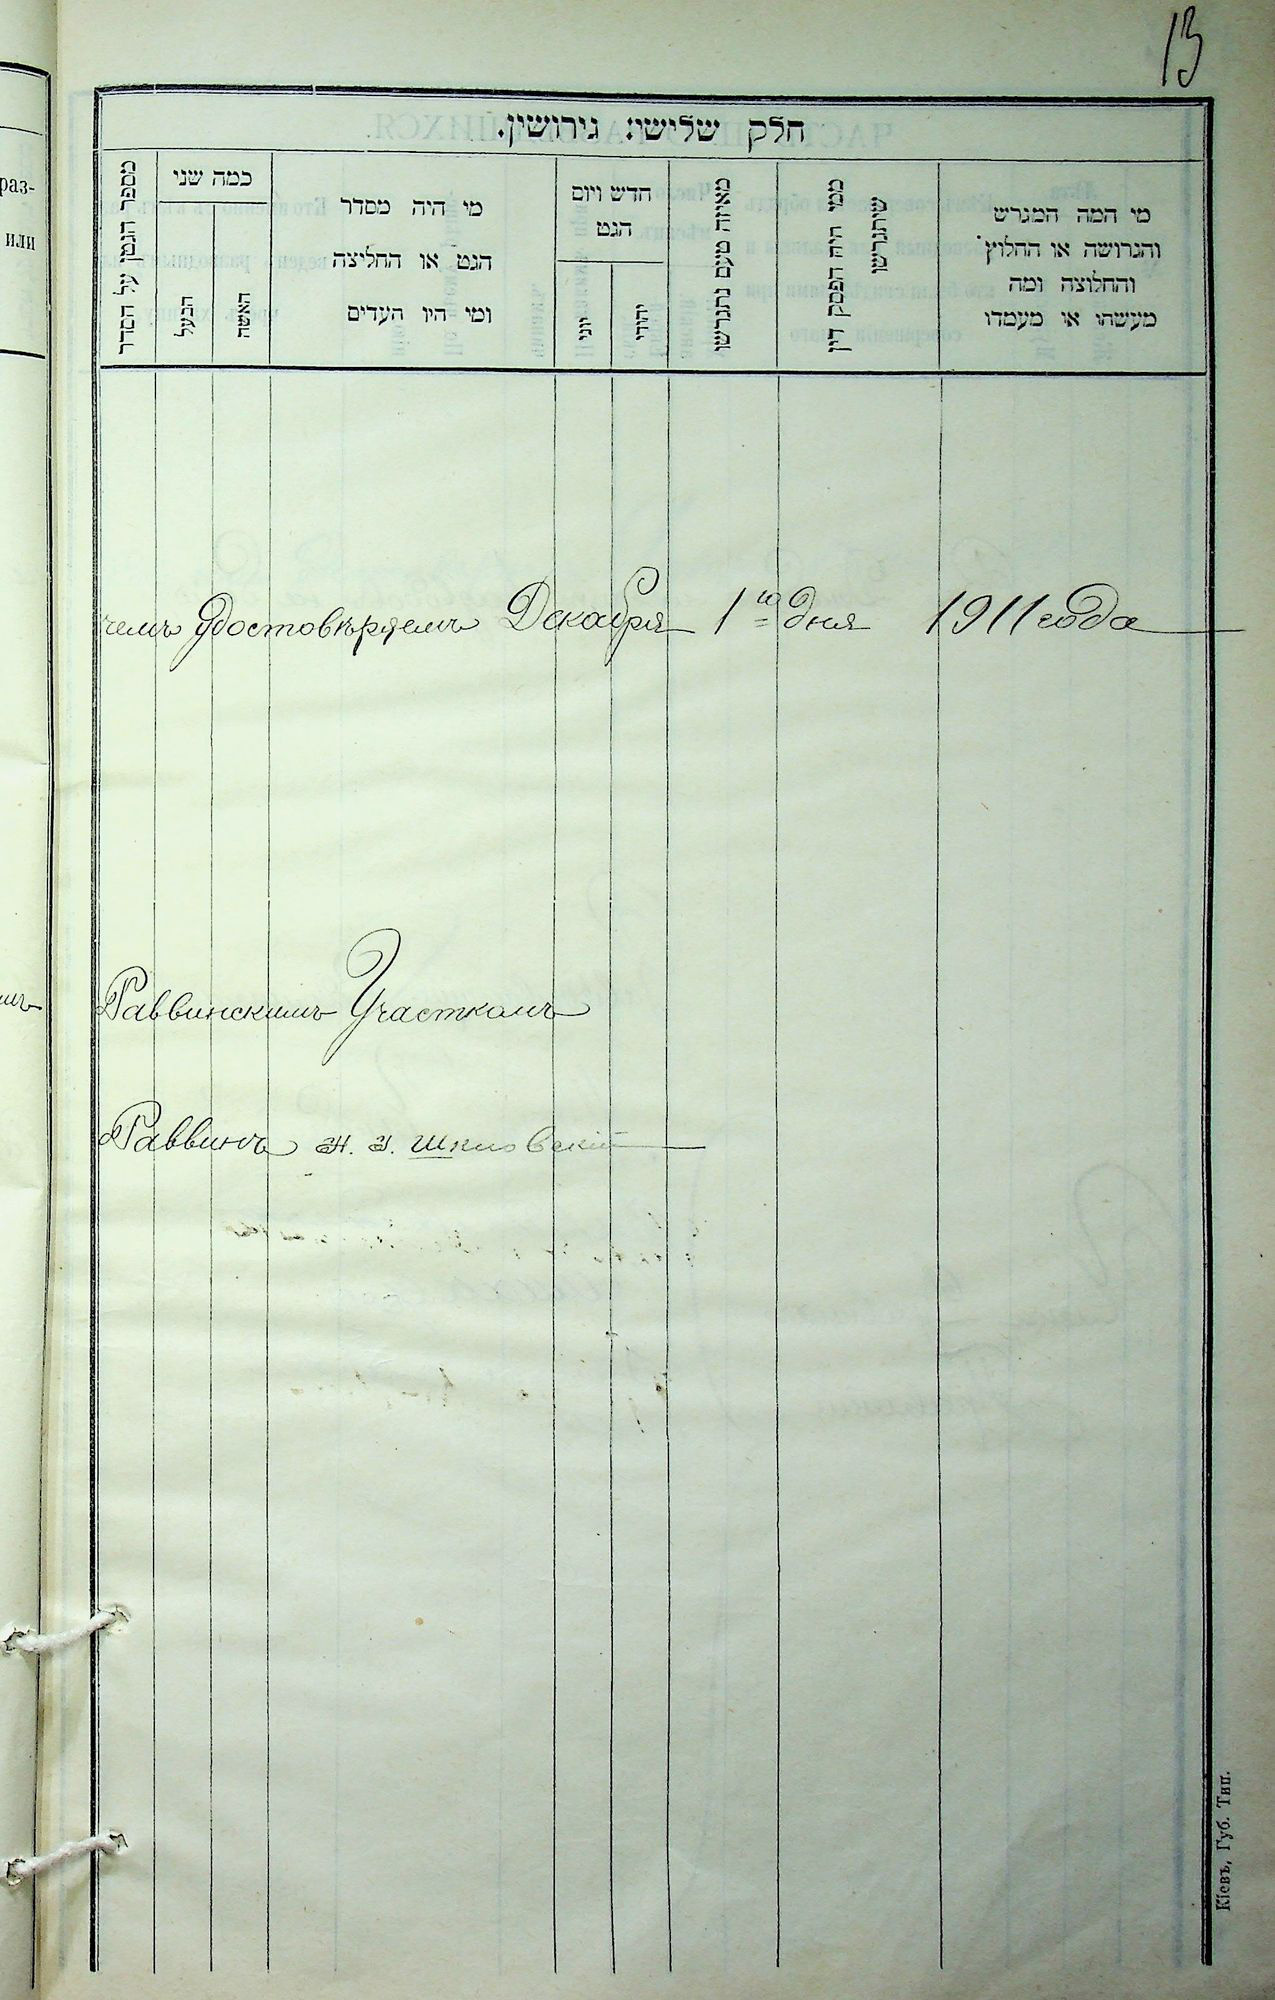 13
раз-
или
חלק שלישי: גירושין.
מספר הנמן על הסדר
כמה שני
הבעל
האשה
מי היה מסדר
הגט או החליצה
ומי היו העדים
חדש ויום
הגט
יוני
יהודי
מאיזה טעם נתגרשו
ממי היה הפסק דין
שיתגרשו
מי המה המגרש
והגרושה או החלוץ
והחלוצה ומה
מעשהו או מעמדו
чемъ удостовѣряемъ Декабря 1го дня 1911 года
Раввинскимъ Участкомъ
Раввинъ
Кіевъ, Губ. Тип.